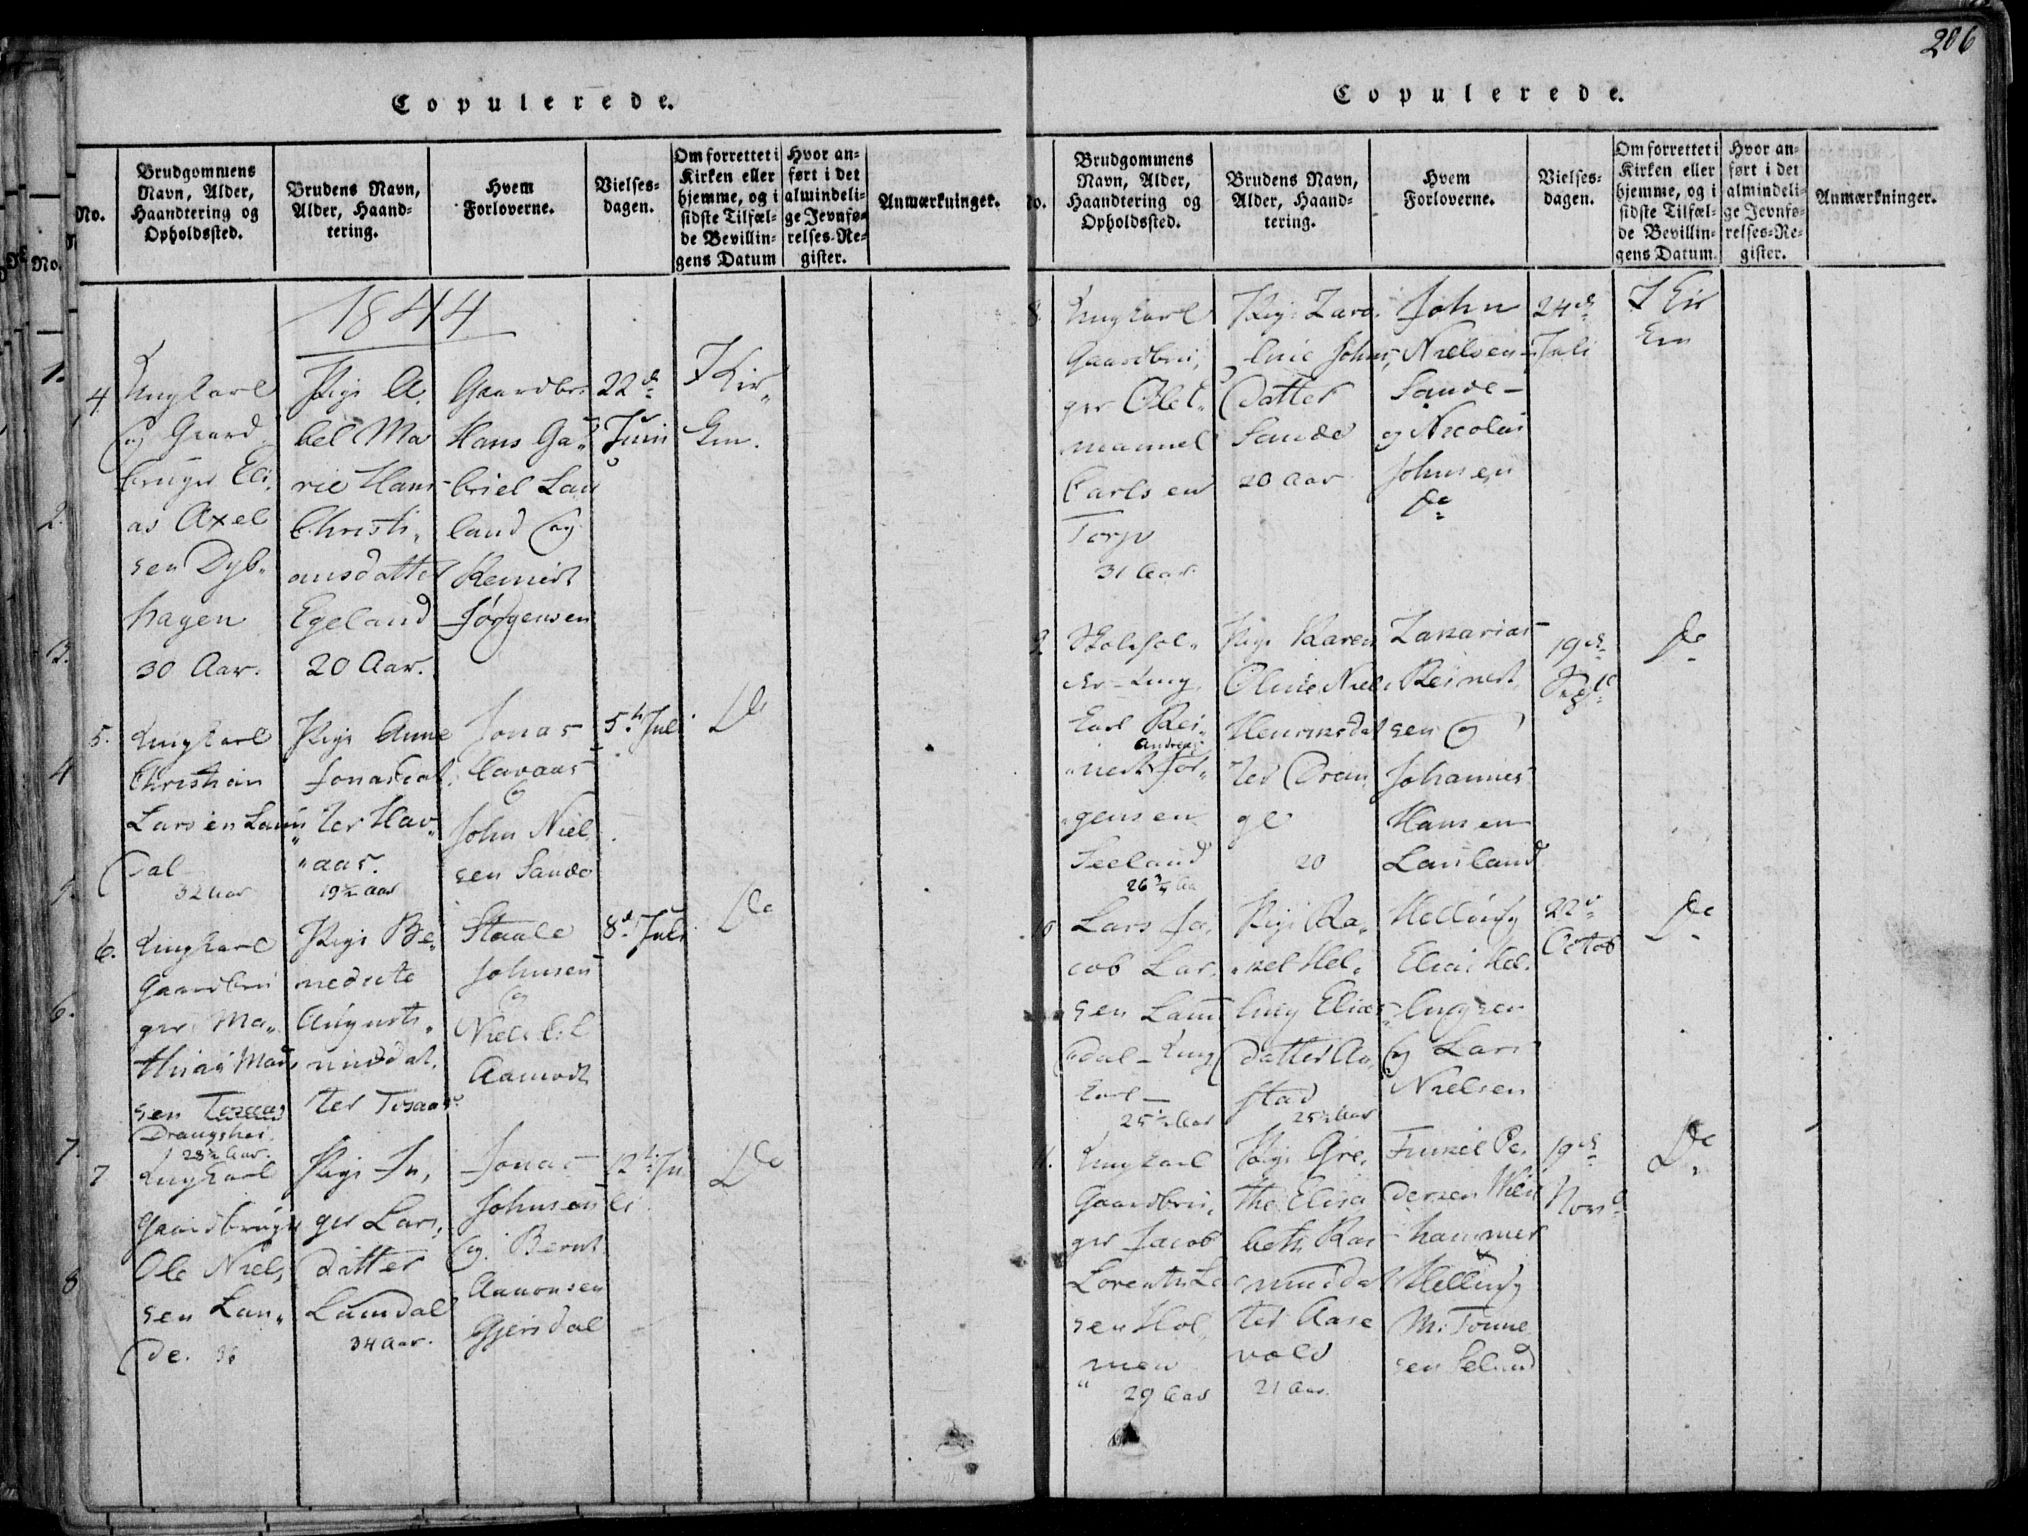 206
Copulerede.
No.
Brudgommens
Navn, Alder,
Haandtering og
Opholdssted.
Brudens Navn,
Alder, Haand-
tering.
Hvem
Forloverne.
Vielses-
dagen.
Om forrettet i
Kirken eller
hjemme, og i
sidste Tilfæl-
de Bevillin-
gens Datum
Hvor an-
ført i det
almindeli-
ge Jevnfø-
relses-Re-
gister.
Anmærkninger.
1844
4.
Ungkarl
og Gaard-
bruger Eli-
as Axel
sen Dyb-
hagen
30 Aar.
Pige A,
bel Ma
rie Hans
Christi,,
ansdatter
Egeland
20 Aar.
Gaardbr.
Hans Ga,,
briel Lau
land og
Reinert
Jørgensen
22de
Juni
I Kir,,
ken.
5.
Ungkarl
Christian
Larsen Laun
dal
32 Aar
Pige Anne
Jonasdat,
ter Hav,,
,,aas.
19½ Aar
Jonas
Havaas
og
John Niel
sen Sande
5te Juli
Do
6.
Ungkarl
Gaardbru
ger Ma,,
thias Mad
sen
Drangshei
28½ Aar.
Pige Be,
nedicte
August,,
insdat,
ter Tosaas
Staale
Johnsen
og
Niels
Aamodt
8de Juli
Do
7
Ungkarl
Gaardbruger
Ole Niel,
sen Lan,,
de. 36
Pige In,
ger Lars,
datter
Laundal
34 Aar.
Jonas
Johnsen
og Bernt
Aanonsen
Gjersdal
12te Ju
li.
Do
Copulerede.
No.
Brudgommens
Navn, Alder,
Haandtering og
Opholdssted.
Brudens Navn,
Alder, Haand-
tering.
Hvem
Forloverne.
Vielses-
dagen.
Om forrettet i
Kirken eller
hjemme, og i
sidste Tilfæl-
de Bevillin-
gens Datum
Hvor an-
ført i det
almindeli-
ge Jevnfø-
relses-Re-
gister.
Anmærkninger.
8.
Ungkarl
Gaardbru,
ger Ole E,,
manuel
Carlsen
Torp
31 Aar.
Pige Karo,
line Johns,
datter
Sande
20 Aar
John
Nielsen
Sande
og Nicolai
Johnsen
do
24de
Juli
I Kir
ken
9
Skolehol,,
der Ung,
karl Rei,,
Andreas
,,nert Jør,,
,,gensen
Seeland
26¾ Aar
Pige Karen
Oline Niel,
Henricsdat
ter Dran
ge
20
Zakarias
Reinert,
sen og
Johannes
Hansen
Lauland
19de
Septr
Do
10
Lars Ja,
cob Lar,
sen Laun
dal Ung
karl
25½ Aar
Pige Ra,,
,,kel Hel,,
ling Elias
datter Aa,
stad
25½ Aar
Helling
Elias Hel,
lingsen
og Lars
Nielsen
22de
Octob
Do
11.
Ungkarl
Gaardbru,
ger Jacob
Lorents La
sen Hol,
men
29 Aar
Pige Gre,
the Elisa
beth Ras
musdat
ter Aase
vold
21 Aar.
Pe,
dersen
hammer
Helling
M. Tønne
sen Seland
19de
Novr
Do